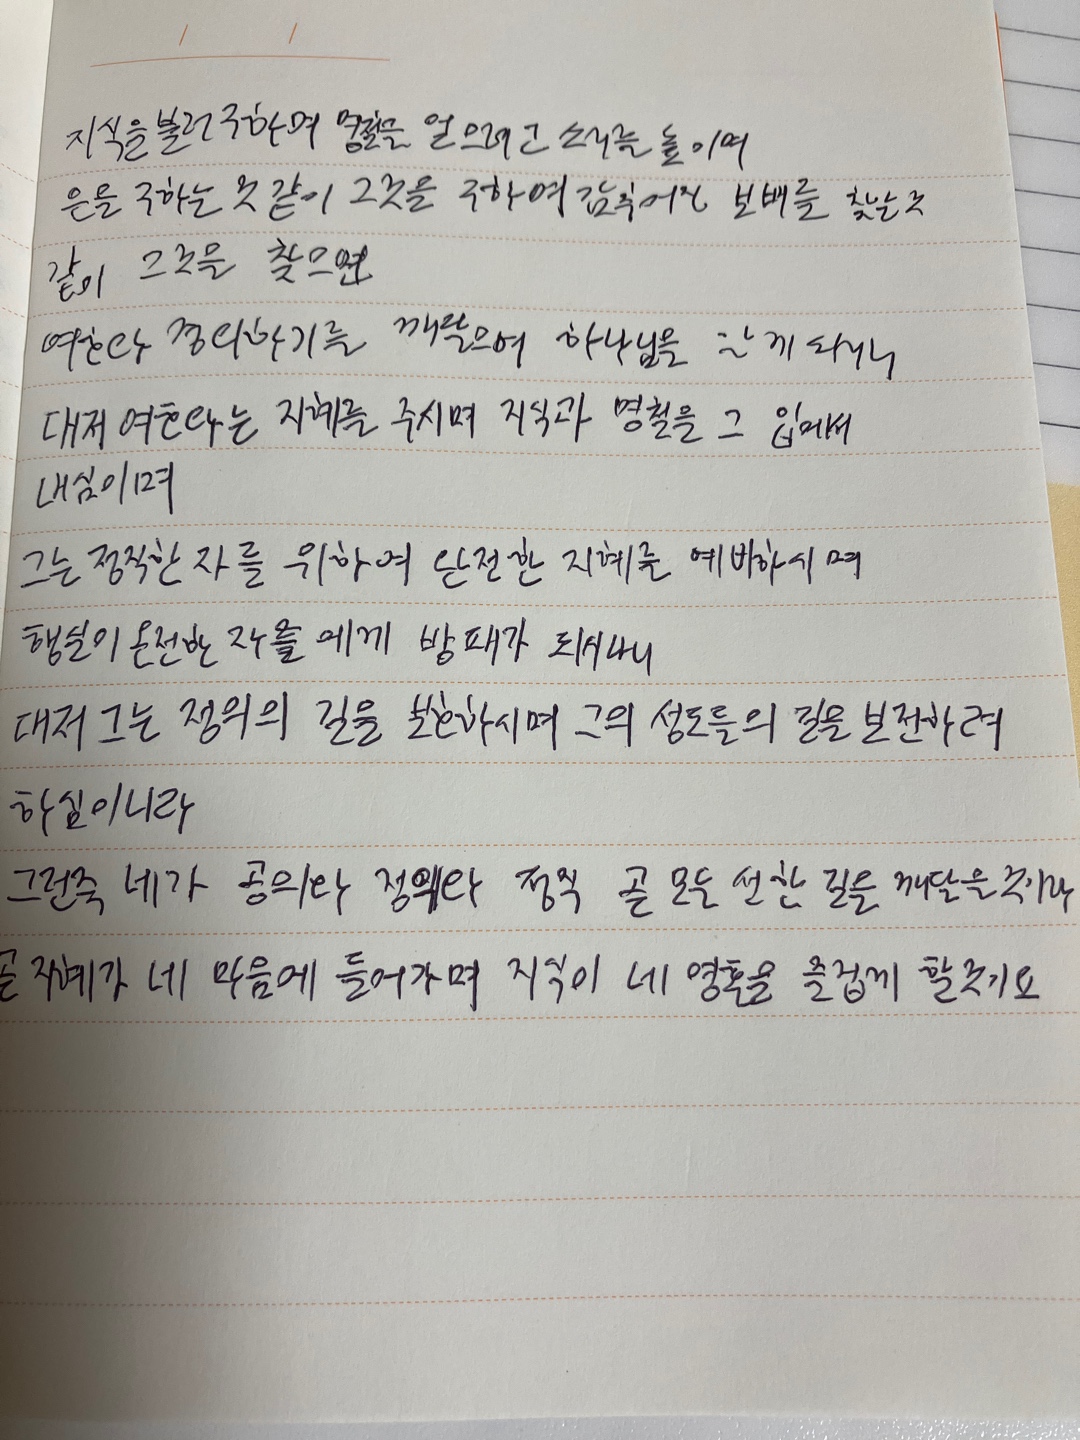 지식을 불러 구하며 명철을 얻으려고 소리를 높이며
은을 구하는 것 같이 그것을 구하여 감추어진 보배를 찾는 것
같이 그것을 찾으면
여호와 경외하기를 깨달으며 하나님을 알게 되리니
대저 여호와는 지혜를 주시며 지식과 명철을 그 입에서
내심이며
그는 정직한 자를 위하여 완전한 지혜를 예비하시며
행실이 온전한 자들에게 방패가 되시나니
대저 그는 정의의 길을 보호하시며 그의 성도들의 길을 보전하려
하심이니라
그런즉 네가 공의와 정의와 정직 곧 모든 선한 길을 깨달을 것이라
곧 지혜가 네 마음에 들어가며 지식이 네 영혼을 즐겁게 할 것이요